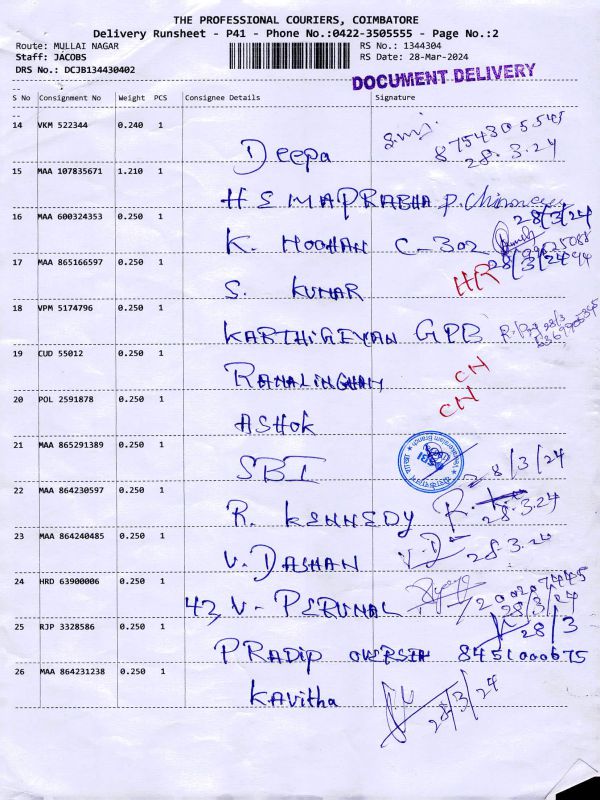 THE PROFESSIONAL COURIERS, COIMBATORE
Delivery Runsheet - P41 - Phone No.:0422-3505555 - Page No.:2
Route: MULLAI NAGAR RS No.: 1344304
Staff: JACOBS RS Date: 28-Mar-2024
DRS No.: DCJB134430402
DOCUMENT DELIVERY
S No Consignment No Weight PCS Consignee Details Signature
14 VKM 522344 0.240 1
Deepa 8754305545
28.3.24
15 MAA 107835671 1.210 1
H S MAPRABHA
28/3/24
16 MAA 600324353 0.250 1
K. MOOHAN C-302
28/3/24
17 MAA 865166597 0.250 1
S. KUMAR HR
18 VPM 5174796 0.250 1
KARTHIGEYAN GPB
19 CUD 55012 0.250 1
RAMALINGHAM CN
20 POL 2591878 0.250 1
ASHOK CN
21 MAA 865291389 0.250 1
SBI 28/3/24
SBI
22 MAA 864230597 0.250 1
R. KENNEDY 28.3.24
23 MAA 864240485 0.250 1
V. DASHAN V.D 28.3.24
24 HRD 63900006 0.250 1
42, V- PERUMAL
28/3/24
25 RJP 3328586 0.250 1
28/3
PRADIP 8451000675
26 MAA 864231238 0.250 1
Kavitha 28/3/24